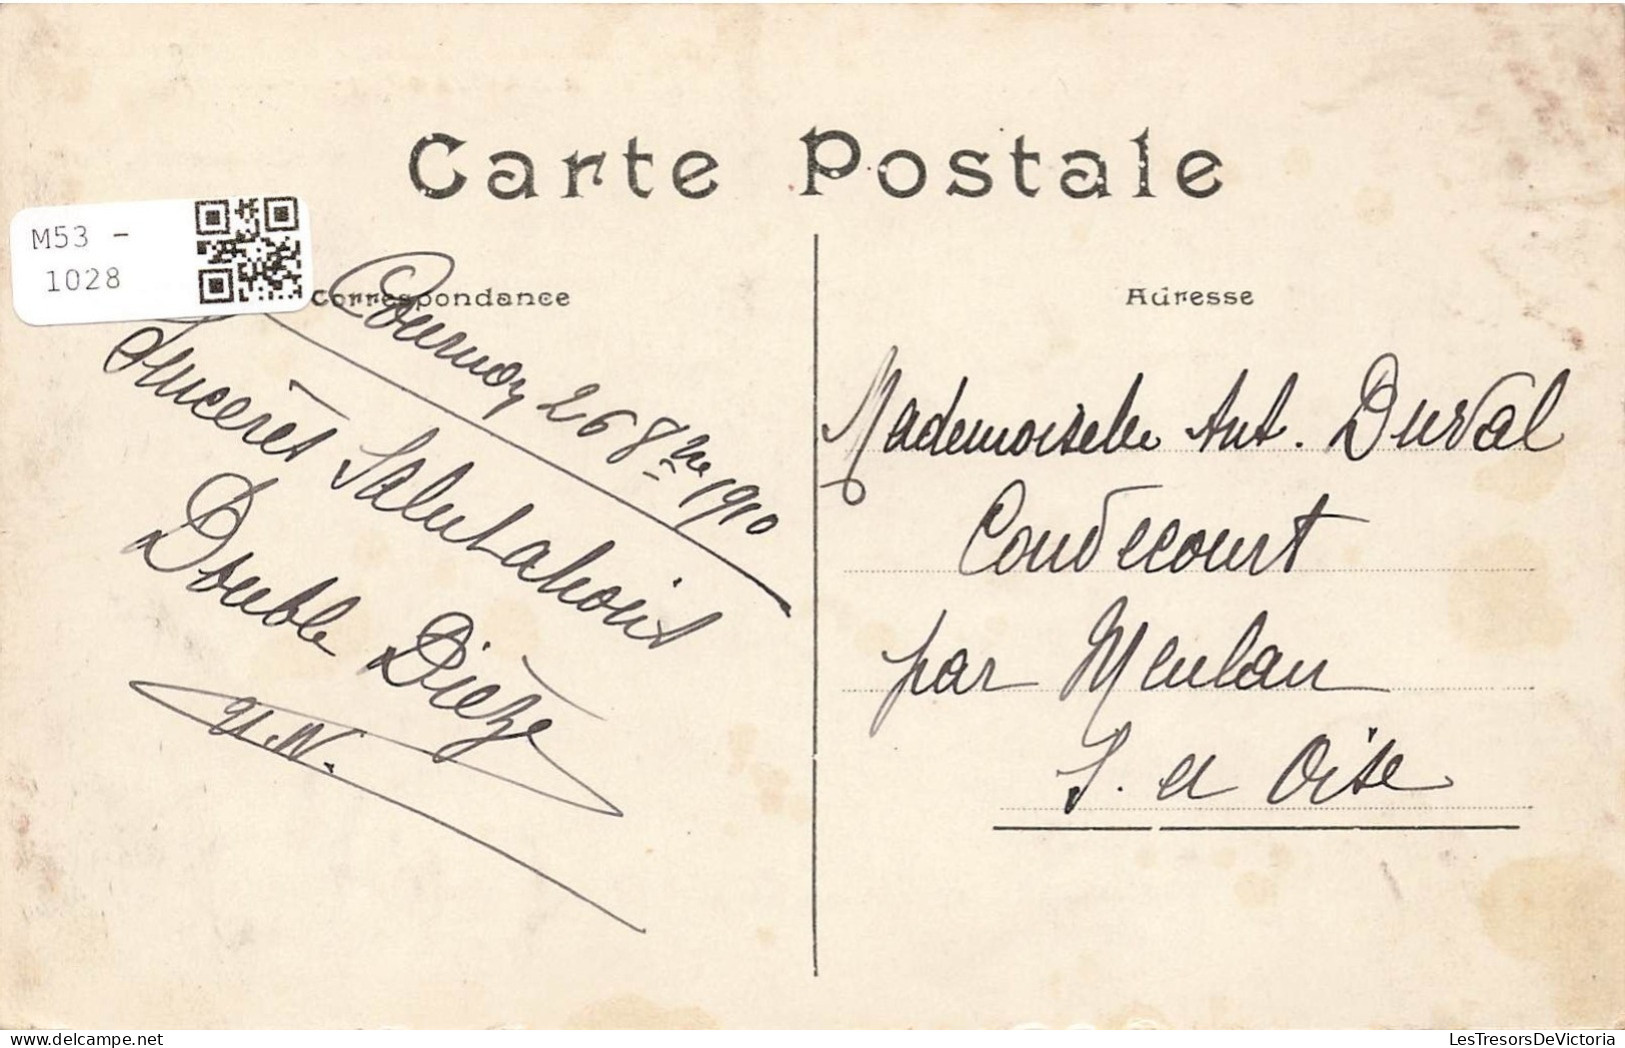 Carte Postale
M53 -
1028
Correspondance
Cournon 26 8bre 1910
Sincères Salutations
Double Dièze
Adresse
Mademoiselle Ant. Duval
Condecourt
par Meulan
S. et Oise
LesTresorsDeVictoria